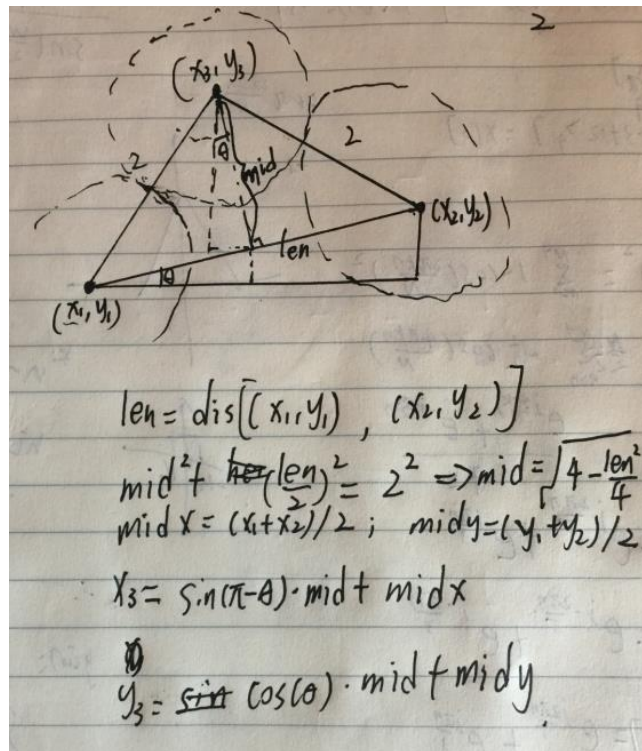 2
(x3, y3)
2
θ
mid
2
(x2, y2)
len
θ
(x1, y1)
len = dis[(x1, y1), (x2, y2)]
mid² + (len/2)² = 2² => mid = √(4 - len²/4)
midx = (x1+x2)/2; midy = (y1+y2)/2
x3 = sin(π-θ)·mid + midx
y3 = sin cos(θ)·mid + midy